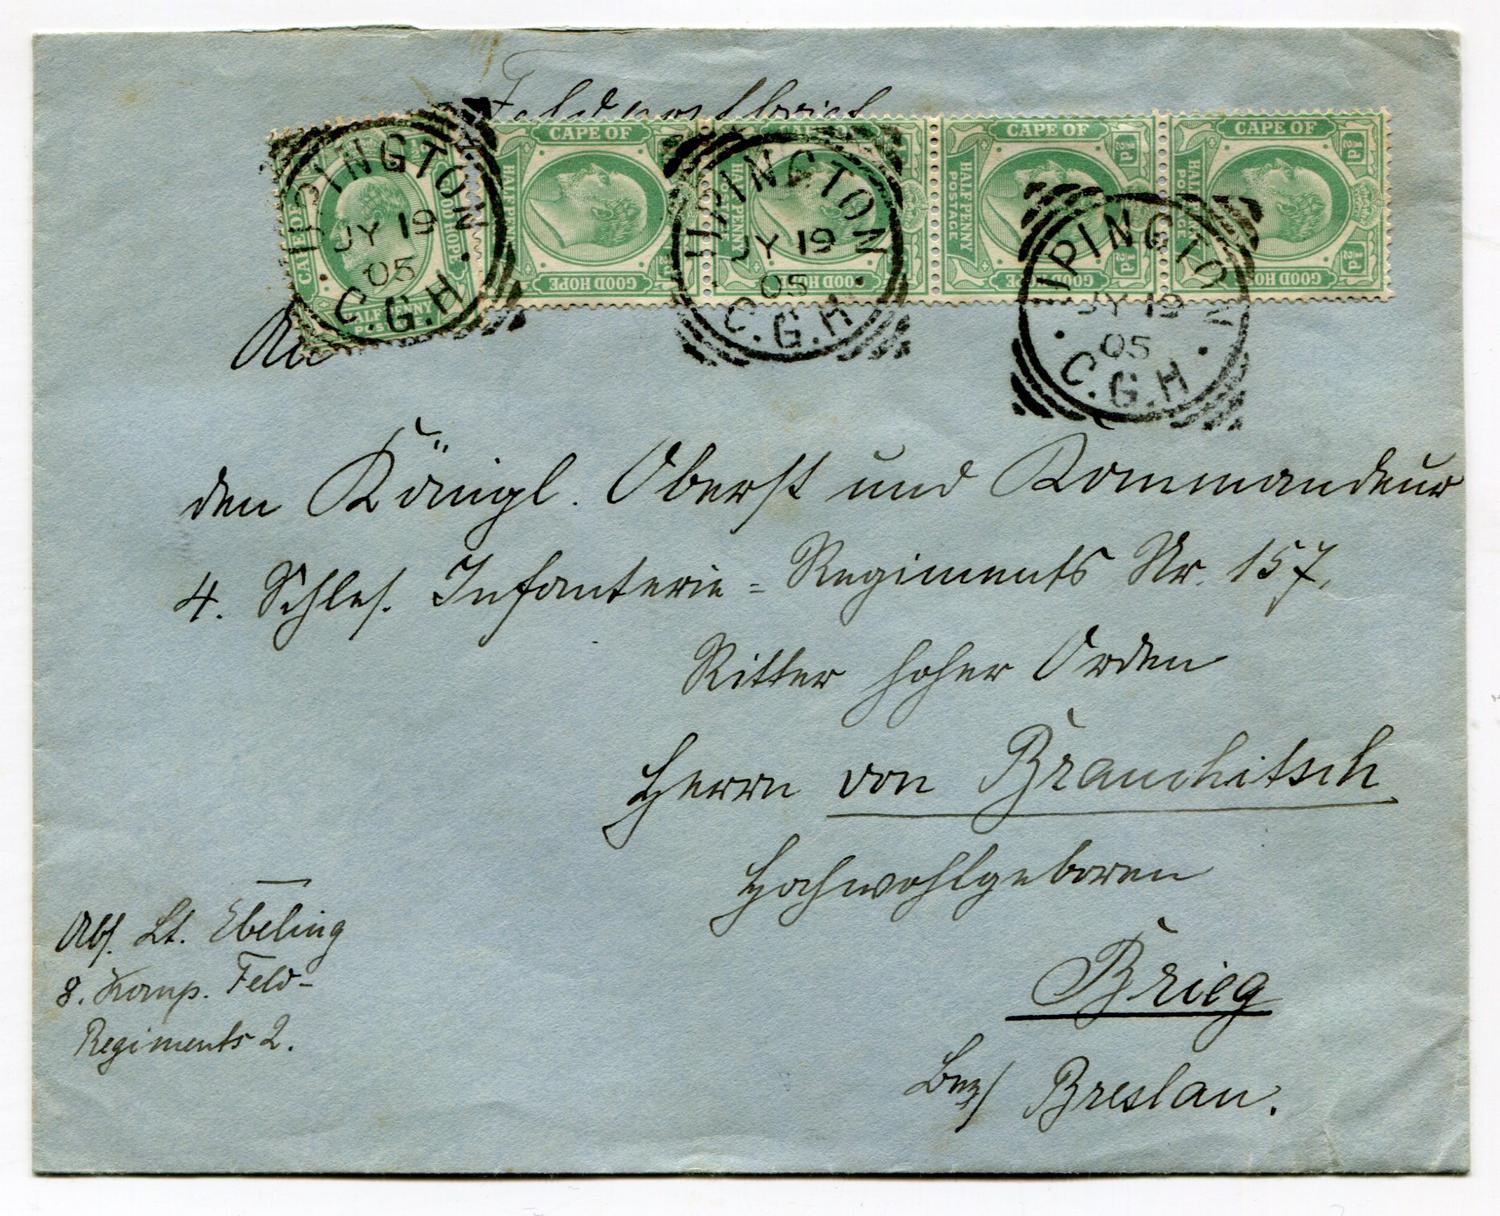 Feldpostbrief
CAPE OF GOOD HOPE HALFPENNY POSTAGE
CAPE OF GOOD HOPE HALFPENNY POSTAGE ½d
CAPE OF GOOD HOPE HALFPENNY POSTAGE
CAPE OF GOOD HOPE HALFPENNY POSTAGE ½d ½d
CAPE OF GOOD HOPE HALFPENNY POSTAGE ½d ½d
UPINGTON JY 19 05 C.G.H.
UPINGTON JY 19 05 C.G.H.
UPINGTON JY 19 05 C.G.H
An
den Königl. Oberst und Kommandeur
4. Schles. Infanterie=Regiments Nr. 157,
Ritter hoher Orden
Herrn von Brauchitsch
Hochwohlgeboren
Brieg
Bez/ Breslau.
Abs. Lt. Ebeling
8. Komp. Feld-
Regiments 2.